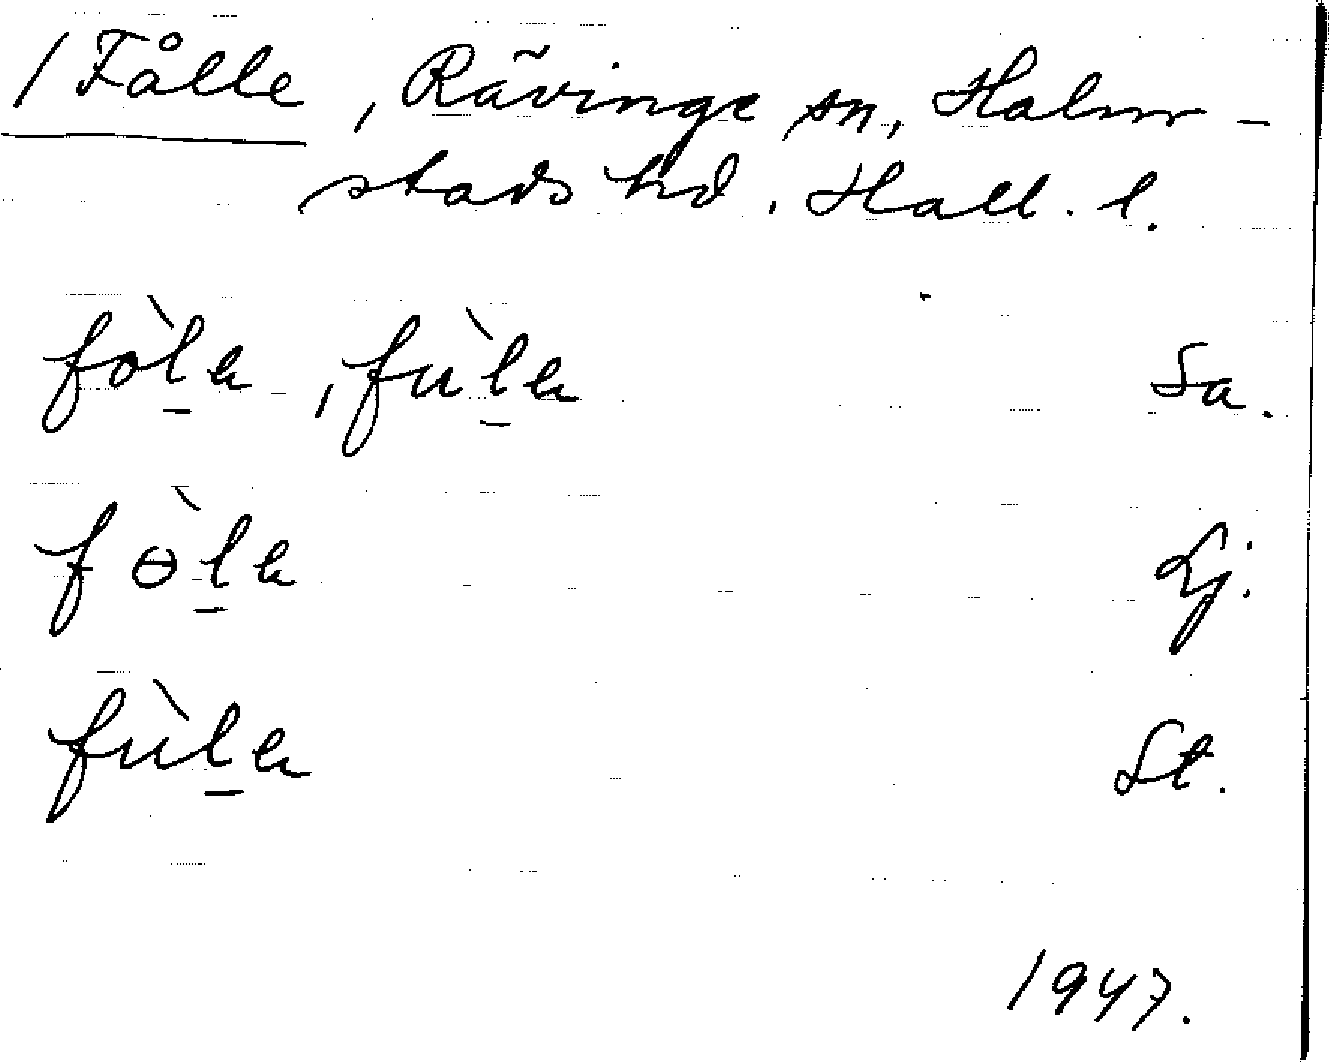 / Fålle, Rävinge sn, Halm-
stads hd. Hall. l.
fòl̠a, fùl̠a Sa.
fɵ̀l̠a Lj.
fùl̠a St.
1947.